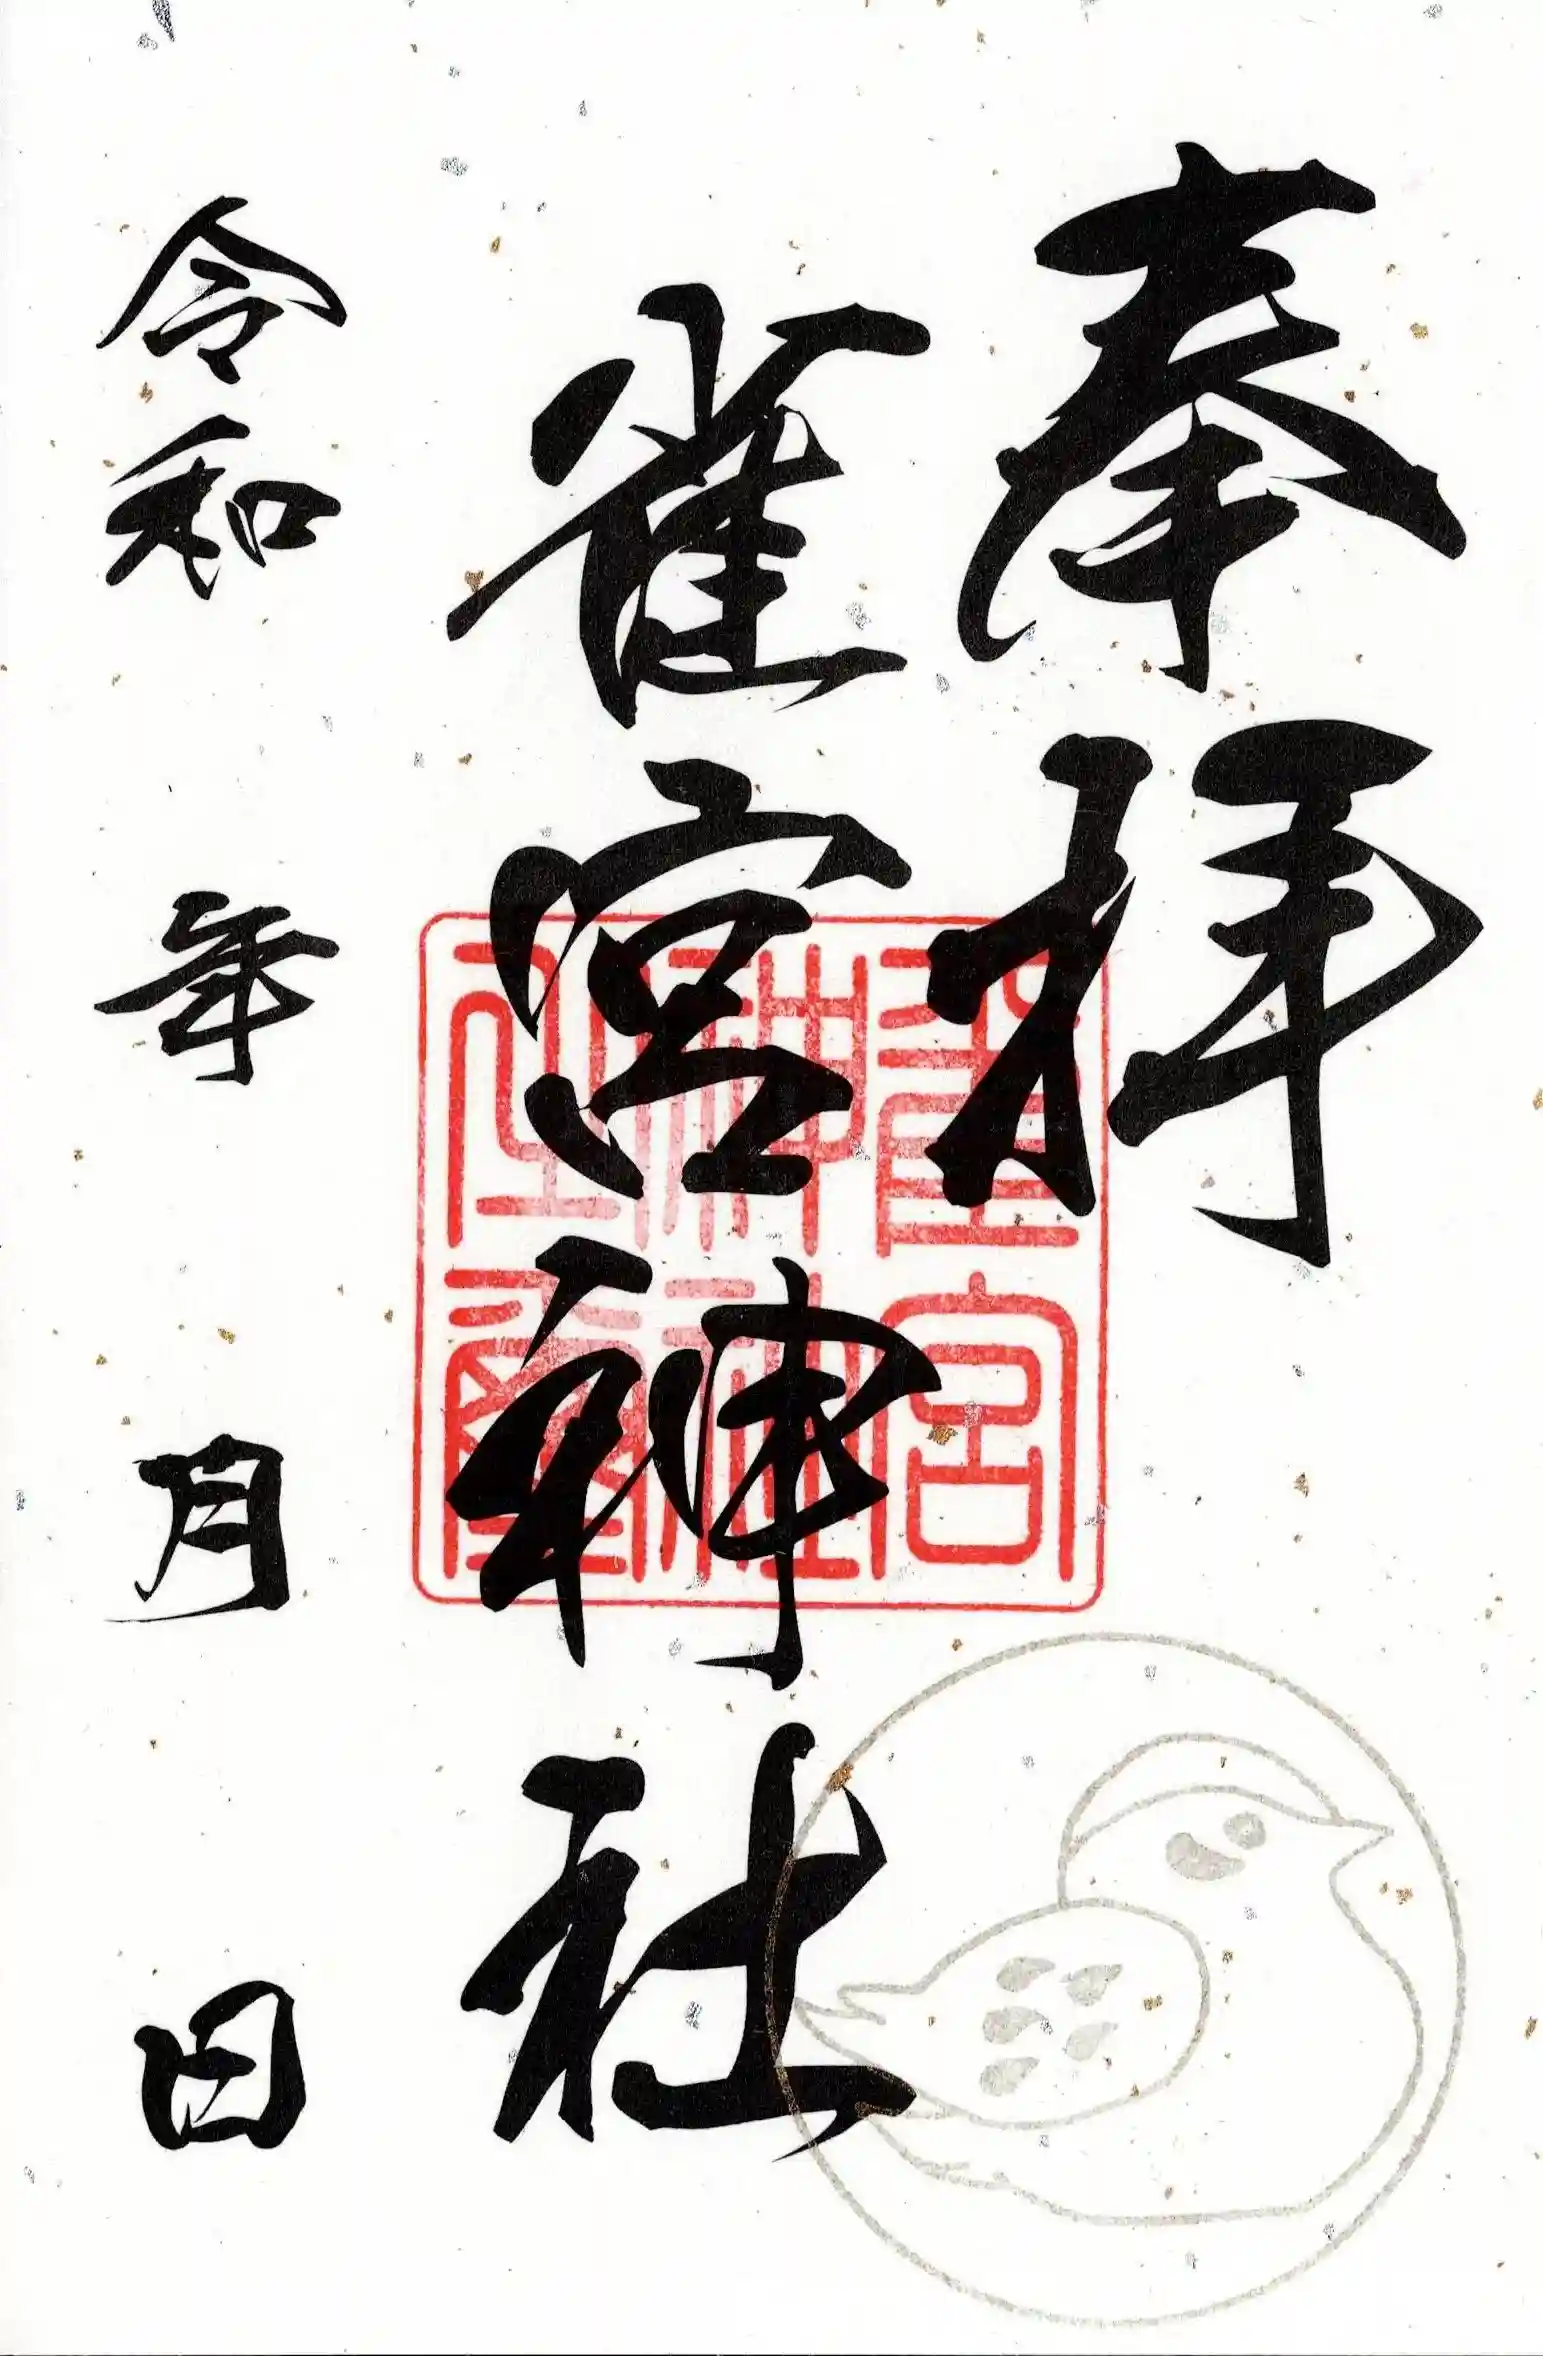 奉拝
雀宮神社
雀宮
神社
令和 年 月 日